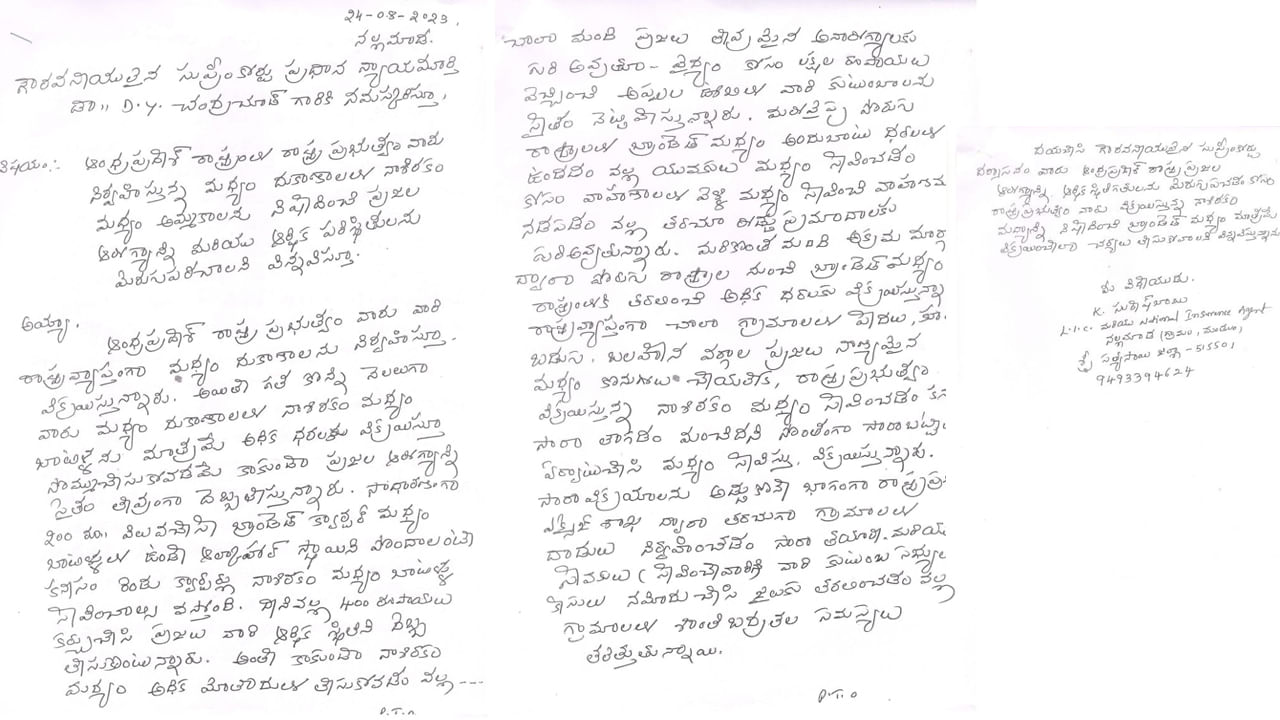 24-08-2023,
నల్లమాడ.
గౌరవనీయులైన సుప్రీంకోర్టు ప్రధాన న్యాయమూర్తి
డా,, D.Y. చంద్రచూడ్ గారికి నమస్కరిస్తూ,
విషయం:- ఆంధ్రప్రదేశ్ రాష్ట్రంలో రాష్ట్ర ప్రభుత్వం వారు
నిర్వహిస్తున్న మద్యం దుకాణాలలో నాశిరకం
మద్యం అమ్మకాలను నిషేధించి ప్రజల
ఆరోగ్యాన్ని మరియు ఆర్థిక పరిస్థితులను
మెరుగుపరచాలని విన్నవిస్తూ.
అయ్యా,
ఆంధ్రప్రదేశ్ రాష్ట్ర ప్రభుత్వం వారు వారి
రాష్ట్రవ్యాప్తంగా మద్యం దుకాణాలను నిర్వహిస్తూ.
విక్రయిస్తున్నారు. అయితే గత కొన్ని నెలలుగా
వారు మద్యం దుకాణాలలో నాశిరకం మద్యం
బాటిళ్లను మాత్రమే అధిక ధరలకు విక్రయిస్తూ
సొమ్ముచేసుకోవడమే కాకుండా ప్రజల ఆరోగ్యాన్ని
సైతం తీవ్రంగా దెబ్బతీస్తున్నారు. సాధారణంగా
200 రూ,, విలువచేసే బ్రాండెడ్ క్వార్టర్ మద్యం
బాటిళ్లలో ఉండే ఆల్కాహాల్ స్థాయిని పొందాలంటే
కనీసం రెండు క్వార్టర్లు నాశిరకం మద్యం బాటిళ్లు
సేవించాల్సి వస్తోంది. దీనివల్ల 400 రూపాయలు
ఖర్చుచేసి ప్రజలు వారి ఆర్థిక స్థితిని దెబ్బ
తీసుకుంటున్నారు. అంతే కాకుండా నాశిరకం
మద్యం అధిక మోతాదులో తీసుకోవడం వల్ల ---
P.T.O
చాలా మంది ప్రజలు తీవ్రమైన అనారోగ్యాలకు
గురి అవుతూ - వైద్యం కోసం లక్షల రూపాయలు
వెచ్చించి అప్పుల ఊబిలో వారి కుటుంబాలను
సైతం నెట్టివేస్తున్నారు. మరోవైపు పొరుగు
రాష్ట్రాలలో బ్రాండెడ్ మద్యం అందుబాటు ధరలలో
ఉండడం వల్ల యువకులు మద్యం సేవించడం
కోసం వాహనాలలో వెళ్లి మద్యం సేవించి వాహనాలు
నడపడం వల్ల తరచూ రోడ్డు ప్రమాదాలకు
గురిఅవుతున్నారు. మరికొంత మంది అక్రమ మార్గ
ద్వారా పొరుగు రాష్ట్రాల నుంచి బ్రాండెడ్ మద్యం
రాష్ట్రంలోకి తరలించి అధిక ధరలకు విక్రయిస్తున్నా
రాష్ట్రవ్యాప్తంగా చాలా గ్రామాలలో పేదలు, కూ.
బడుగు. బలహీన వర్గాల ప్రజలు నాణ్యమైన
మద్యం కొనుగోలు చేయలేక, రాష్ట్రప్రభుత్వం
విక్రయిస్తున్న నాశిరకం మద్యం సేవించడం కన
సారా తాగడం మంచిదని సొంతంగా సారాబట్టీ
ఏర్పాటుచేసి మద్యం సేవిస్తు, విక్రయిస్తున్నారు.
సారా విక్రయాలను అడ్డుకొనే భాగంగా రాష్ట్రప్ర
ఎక్సైజ్ శాఖ ద్వారా తరచుగా గ్రామాలలో
దాడులు నిర్వహించడం సారా తయారీ. మరియు
సేవకులు (సేవించేవారిపై) వారి కుటుంబ సభ్యుల
కేసులు నమోదు చేసి జైలుకు తరలించడం వల్ల
గ్రామాలలో శాంతి భద్రతల సమస్యలు
తలెత్తుతున్నాయి.
P.T.O
దయచేసి గౌరవనీయులైన సుప్రీంకోర్టు
ధర్మాసనం వారు ఆంధ్రప్రదేశ్ రాష్ట్ర ప్రజల
ఆరోగ్యాన్ని, ఆర్థిక స్థితిగతులను మెరుగుపరచడం కోసం
రాష్ట్రప్రభుత్వం వారు విక్రయిస్తున్న నాశిరకం
మద్యాన్ని నిషేధించి బ్రాండెడ్ మద్యం మాత్రమే
విక్రయించేలా చర్యలు తీసుకోవాలని విన్నవిస్తున్నాను
ఇట్లు విధేయుడు.
K. సురేష్‌బాబు
L.I.C. మరియు National Insurance Agent
నల్లమాడ (గ్రామం, మండలం)
శ్రీ సత్యసాయి జిల్లా - 515501
9493394624